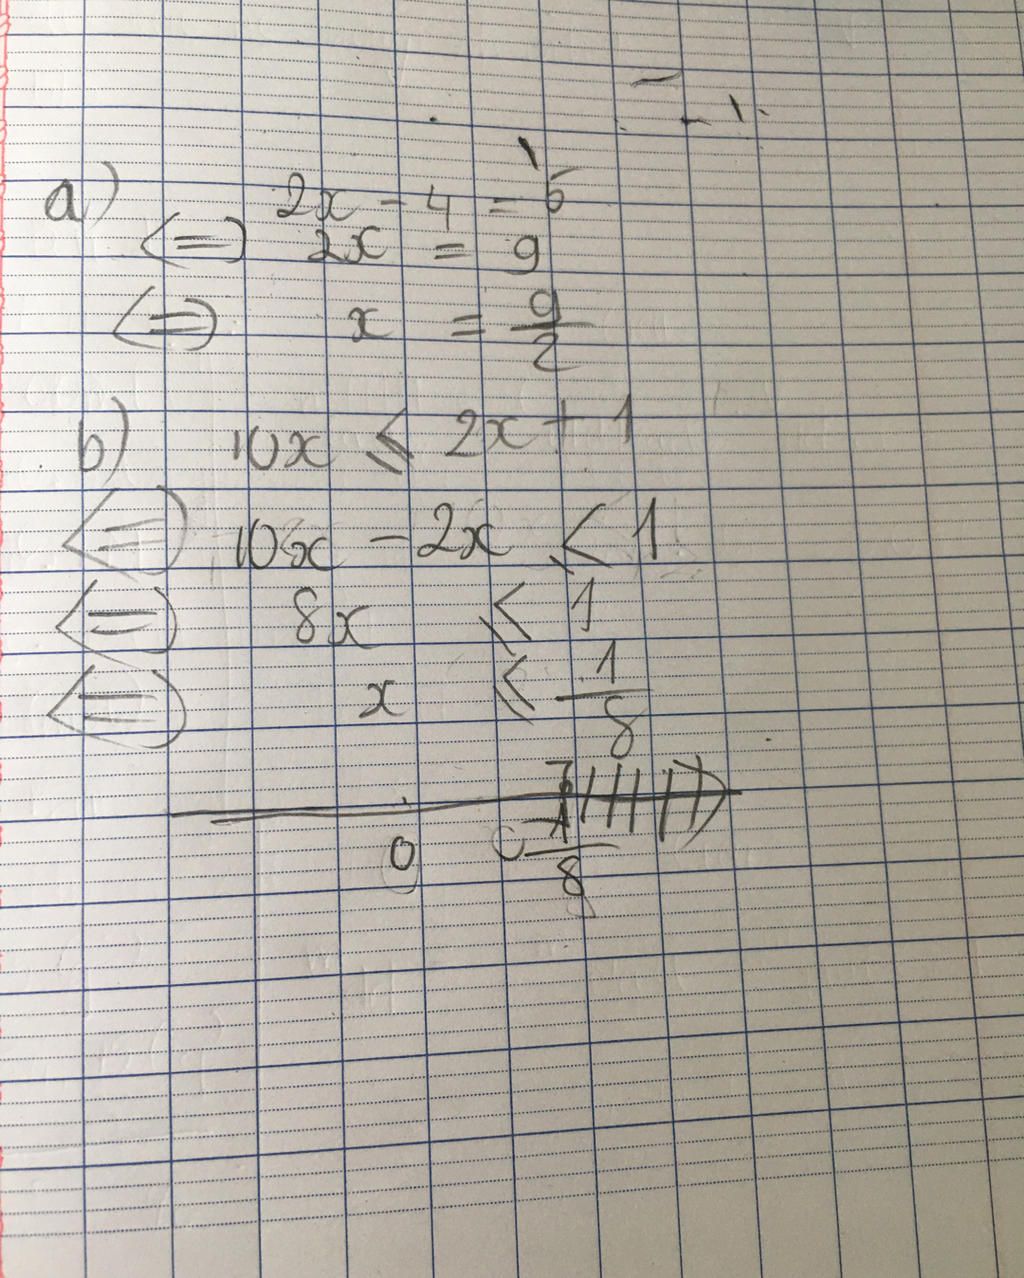 a) 2x - 4 = 5
<=> 2x = 9
<=> x = 9/2
b) 10x ≤ 2x + 1
<=> 10x - 2x ≤ 1
<=> 8x ≤ 1
<=> x ≤ 1/8
0 1/8